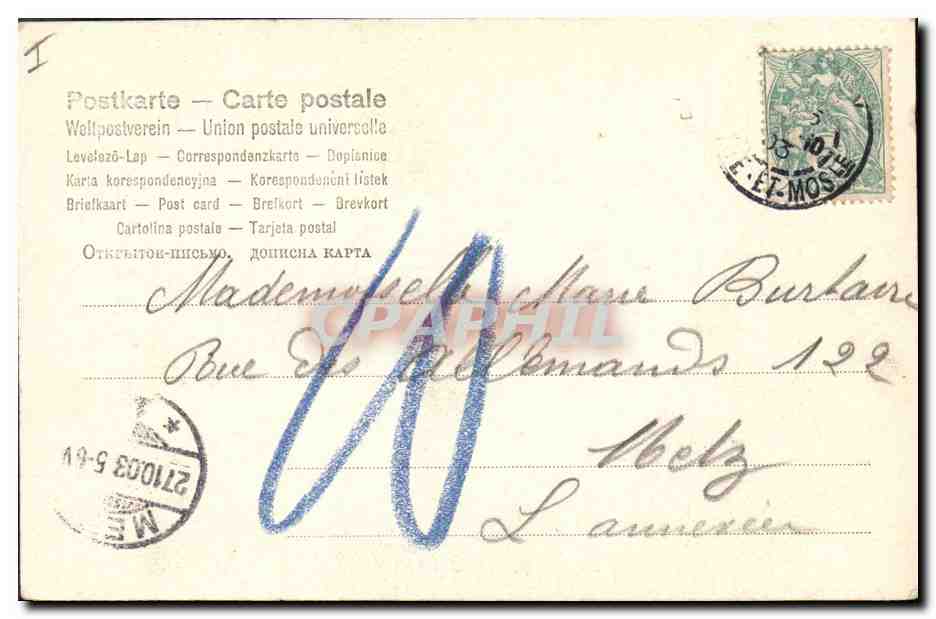 I
Postkarte — Carte postale
Weltpostverein — Union postale universelle
Levelező-Lap — Correspondenzkarte — Dopisnice
Karta korespondencyjna — Korespondenční lístek
Briefkaart — Post card — Brefkort — Brevkort
Cartolina postale — Tarjeta postal
Открытое-письмо. дописна карта
ET-MOSELLE
Mademoiselle Marie Burtaire
Rue des Allemands 122
Metz
L'annexée
10
27.10.03 5-6V
CPAPHIL